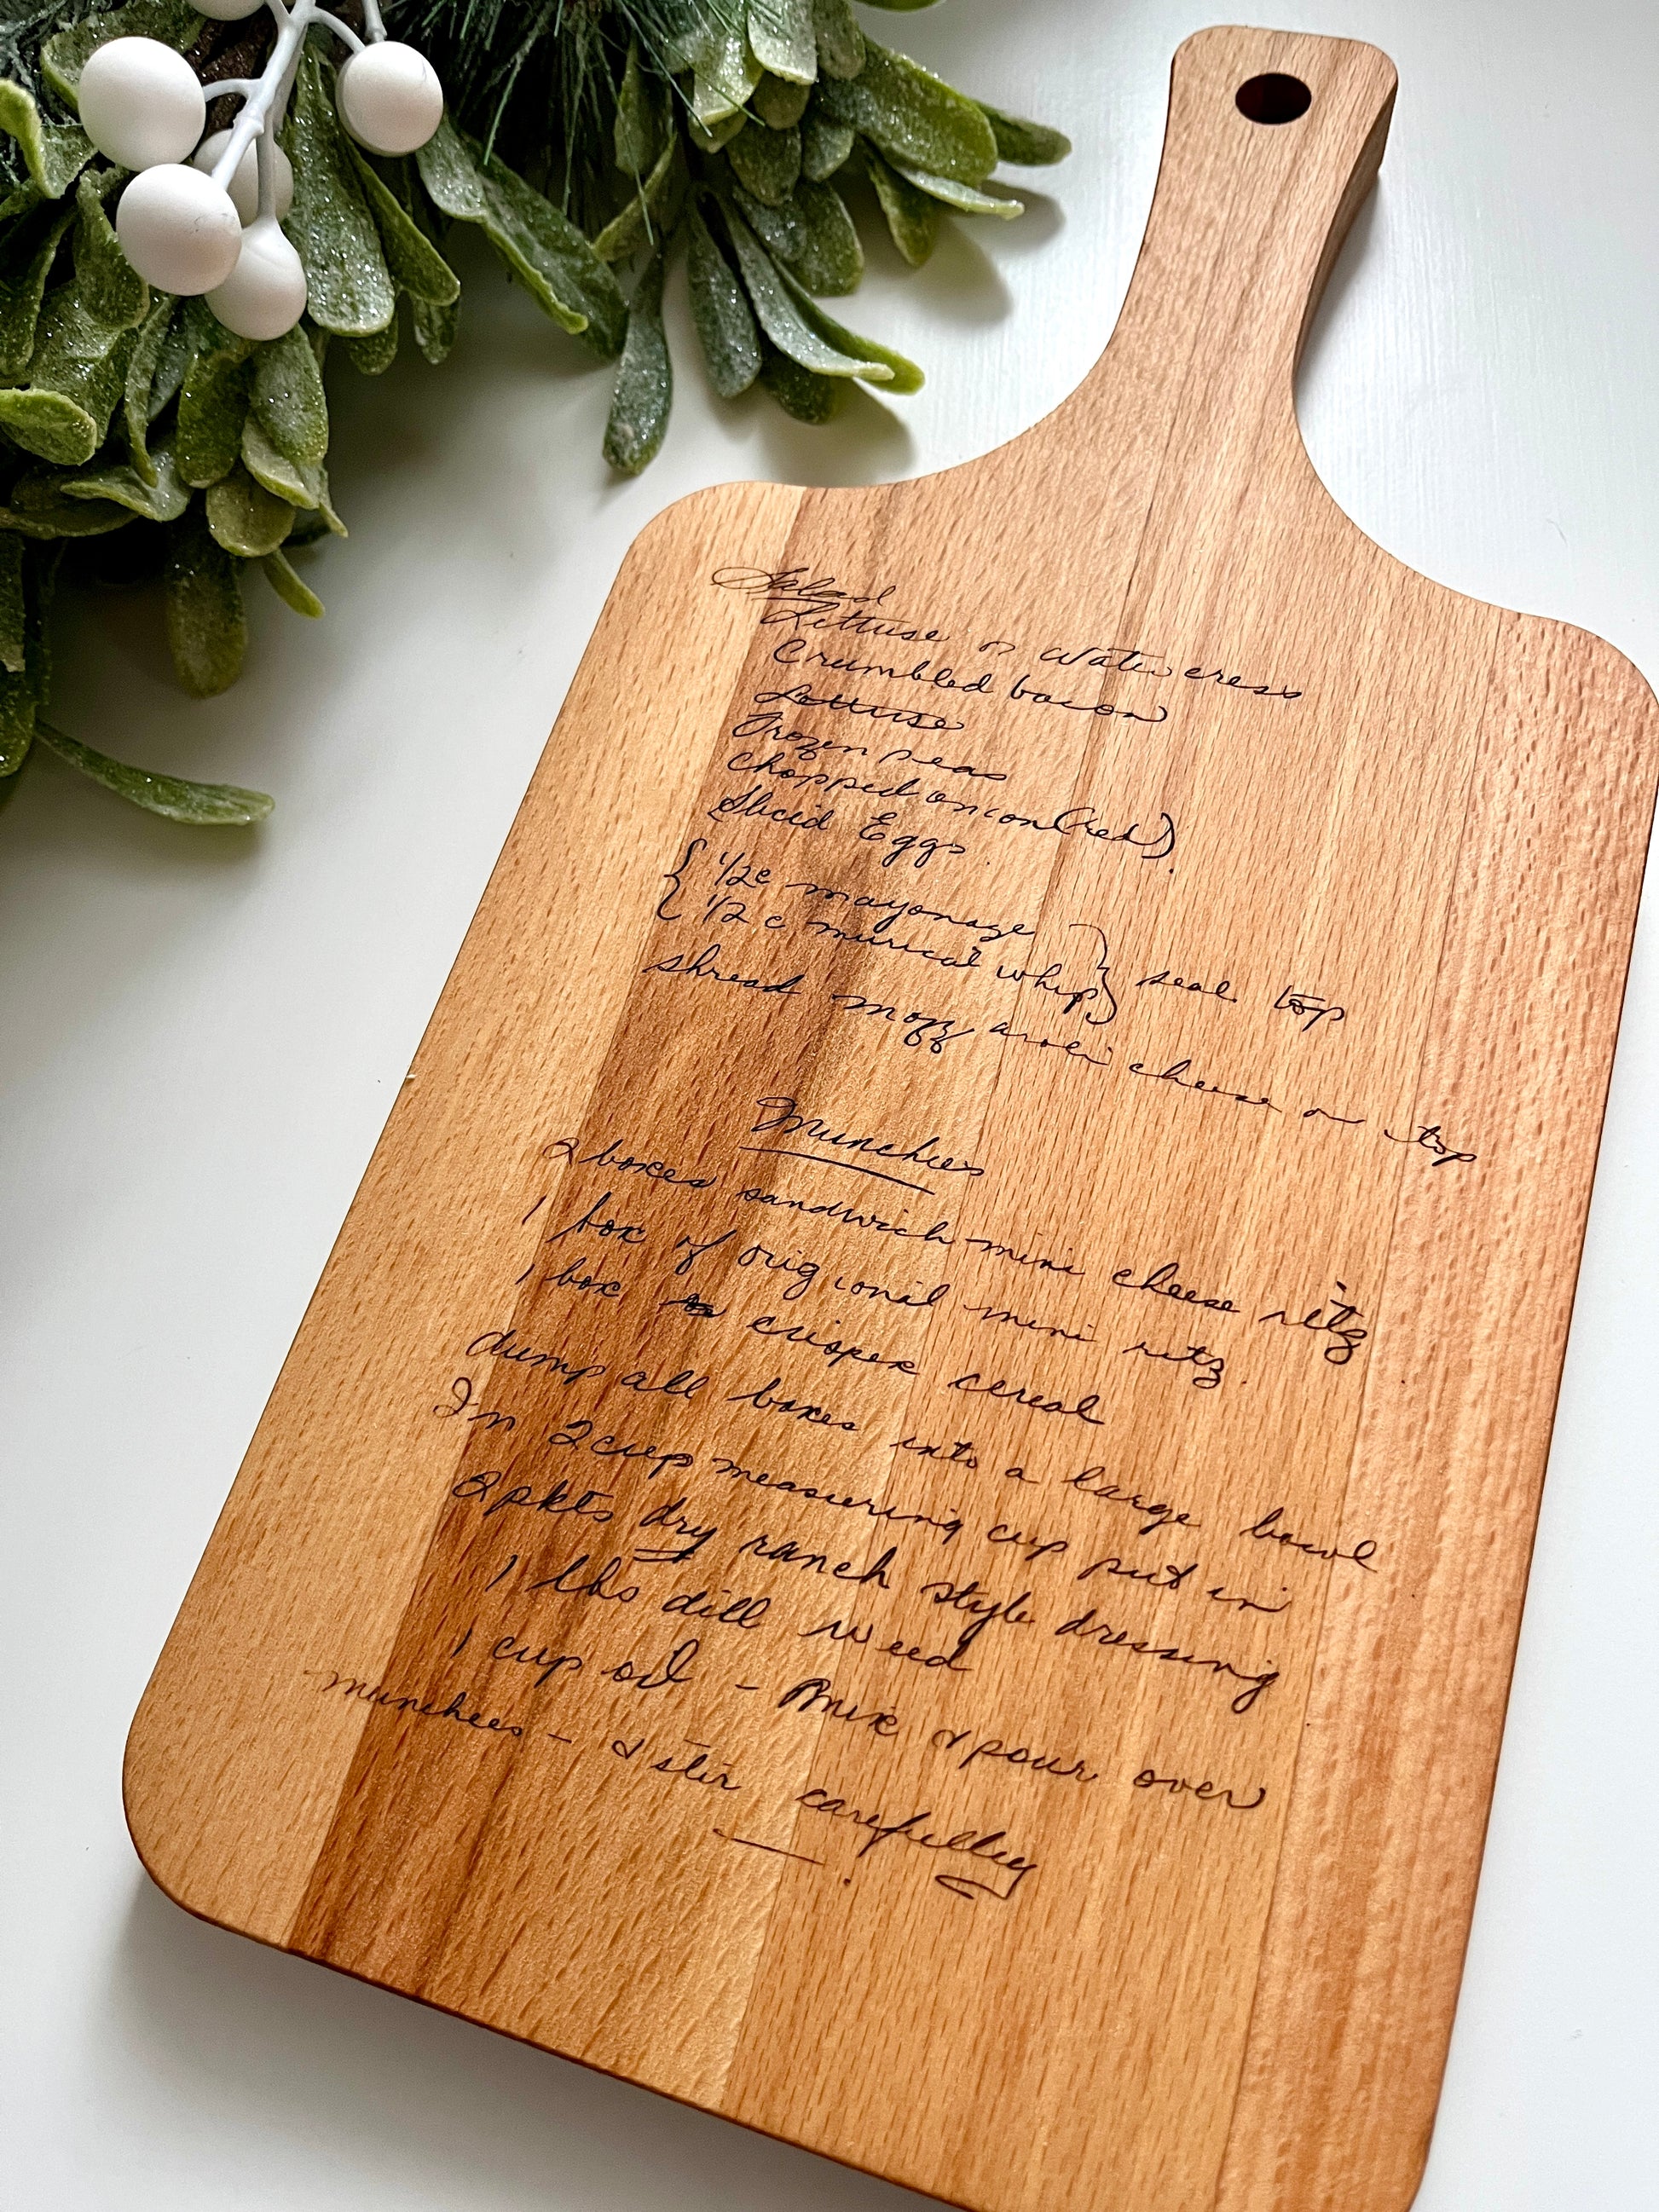 Salad
Lettuse or Water cress
Crumbled bacon
Lettuse
Frozen peas
Chopped onion (red)
Slicid Eggs
1/2 c mayonaze
1/2 c murical whip } seal top
shread mozz aroli cheese on top
Munchies
2 boxes sandwich mini cheese ritz
1 box of orig ional mini ritz
1 box crispex cereal
dump all boxes into a large bowl
In 2 cup measuring cup put in
2 pkts dry ranch style dressing
1 lbs dill weed
1 cup oil - Mix & pour over
munchees - & stir carefulley